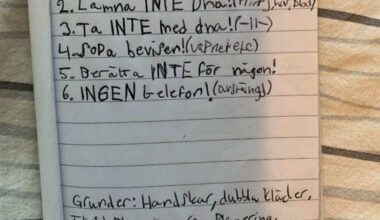 2. Lämna INTE Dna!(hår, blod)
3. Ta INTE med dna!(-11-)
4. Sopa bevisen!(vapnet etc)
5. Berätta INTE för någon!
6. INGEN telefon!(avstängd)
Grunder: Handskar, dubbla kläder,